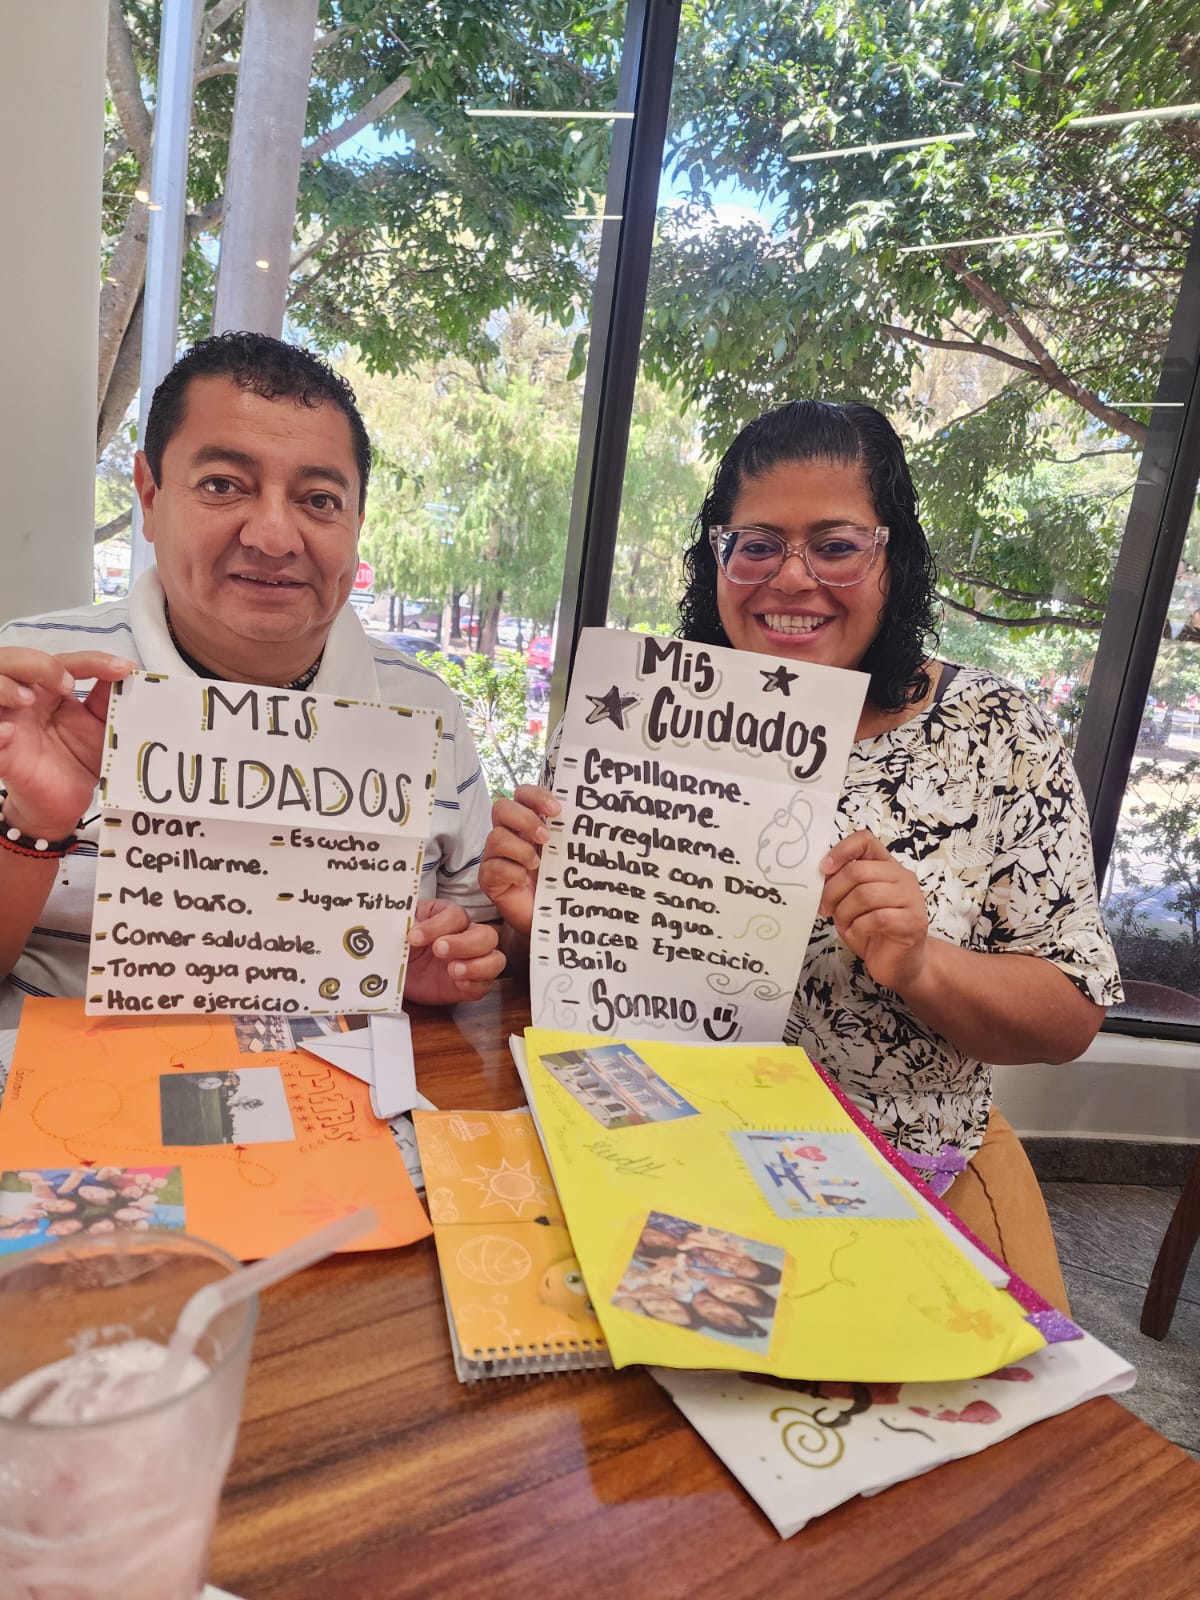 MIS
CUIDADOS
- Orar.
- Cepillarme.
- Me baño.
- Comer saludable.
- Tomo agua pura.
- Hacer ejercicio.
- Escucho
música.
- Jugar Fútbol
Mis
Cuidados
- Cepillarme.
- Bañarme.
- Arreglarme.
- Hablar con Dios.
- Comer sano.
- Tomar Agua.
- hacer Ejercicio.
- Bailo
- Sonrio
ALTO